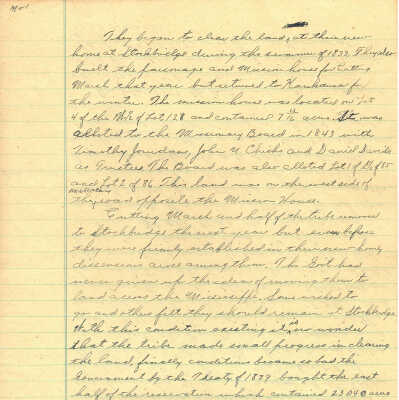 No 1
They began to clear the land, at their new
home at Stockbridge during the summer of 1833. They also
built the parsonage and Mission house for Cutting
March that year but returned to Kaukauna for
the winter. The mission house was located on Lot
4 of the of Lot 128 and contained 7 acres. It was
alloted to the Missionary Board in 1843 with
Timothy Jourdan, John N. Chicks and David Davids
as Trustees. The Board was also alloted Lot 1 of 85
and Lot 2 of 86. This land was on the west side of
the road opposite the Mission House.
Cutting March and half of the tribe removed
to Stockbridge the next year but even before
they were firmly established in their new home
discussions arose among them. The Govt. had
never given up the idea of moving them to
land across the Mississippi. Some wished to
go and others felt they should remain at Stockbridge
With this condition existing it is no wonder
that the tribe made small progress in clearing
the land, finally conditions became so bad the
Government by the Treaty of 1839 bought the east
half of the reservation which contained 23040 acres